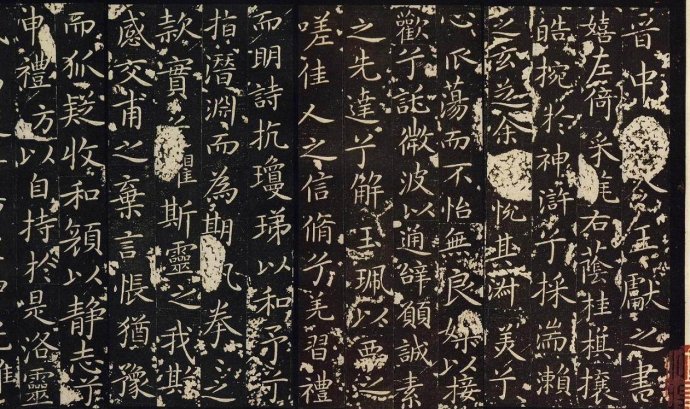 晉中王獻之書
嬉左倚采旄右蔭桂棋攘
皓捥於神滸兮採湍瀨
之玄芝余悅其淑美兮
心蕩而不怡無良媒以接
歡兮託微波以通辭願誠素
之先達兮解玉珮以要之
嗟佳人之信脩兮羌習禮
而明詩抗瓊珶以和予兮
指潛淵而為期執拳之
款實兮懼斯靈之我欺
感交甫之棄言悵猶豫
而狐疑收和顏以靜志兮
申禮方以自持於是洛靈